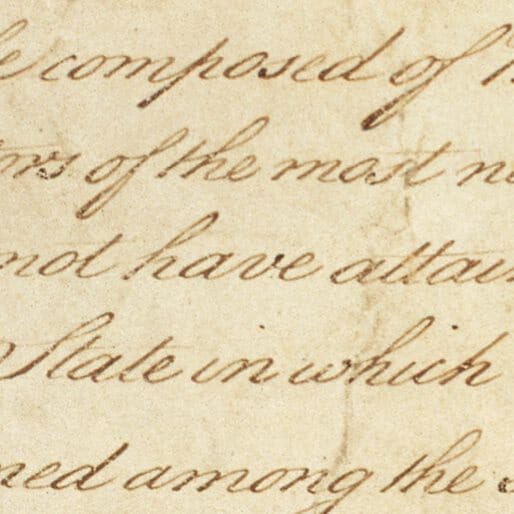 e composed of
ors of the most n
not have attain
State in which
ned among the